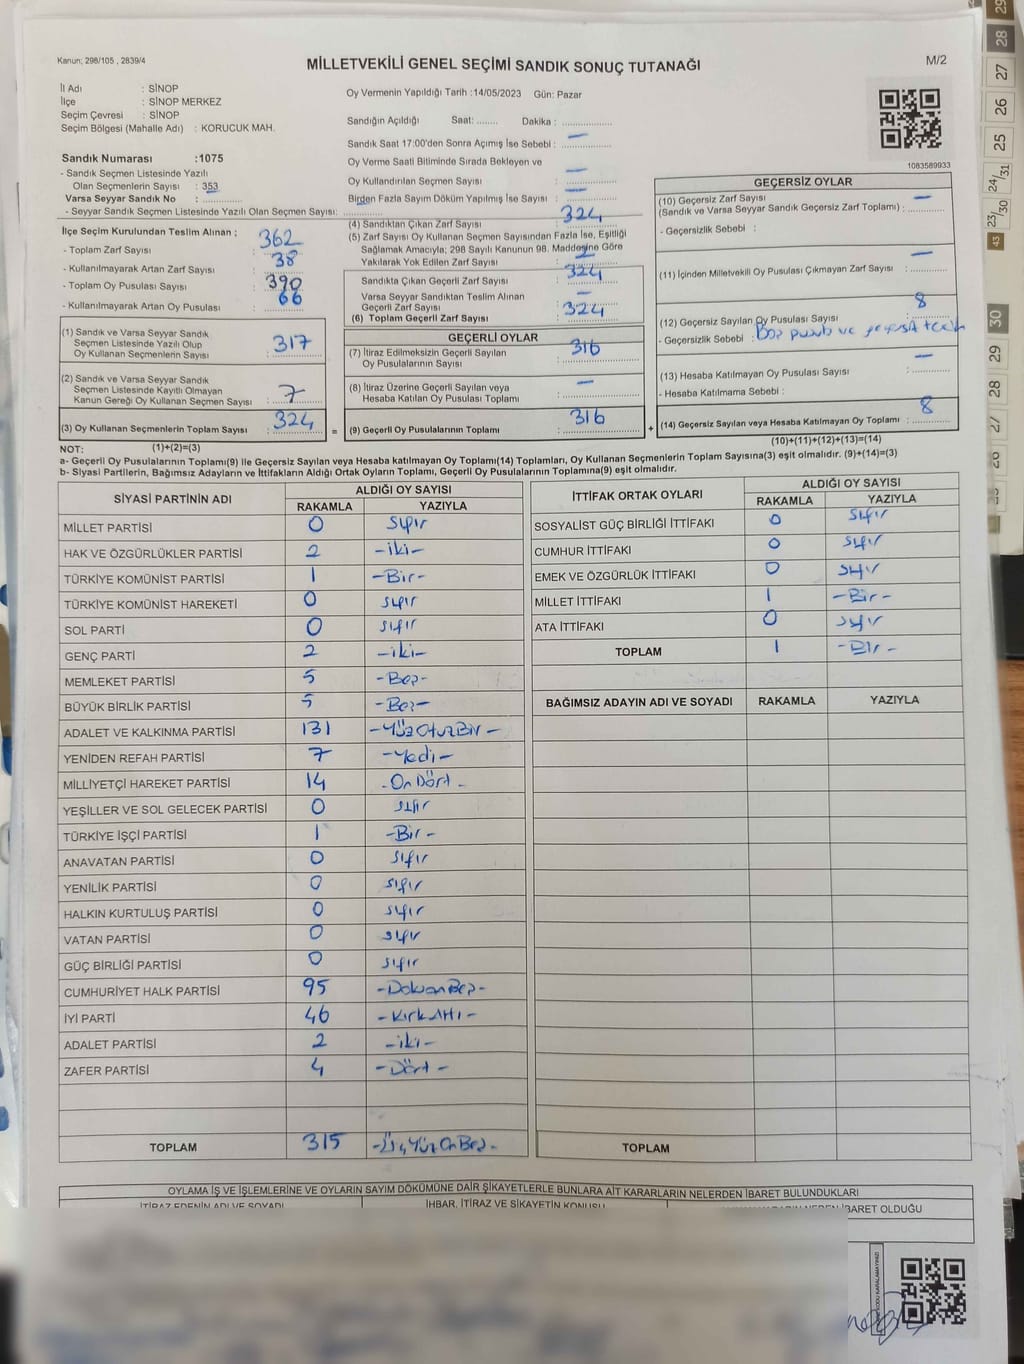 Kanun; 298/105 , 2839/4
MİLLETVEKİLİ GENEL SEÇİMİ SANDIK SONUÇ TUTANAĞI
M/2
İl Adı : SİNOP
İlçe : SİNOP MERKEZ
Seçim Çevresi : SİNOP
Seçim Bölgesi (Mahalle Adı) : KORUCUK MAH.
Sandık Numarası :1075
- Sandık Seçmen Listesinde Yazılı
Olan Seçmenlerin Sayısı : 353
Varsa Seyyar Sandık No :
- Seyyar Sandık Seçmen Listesinde Yazılı Olan Seçmen Sayısı:
İlçe Seçim Kurulundan Teslim Alınan ;
- Toplam Zarf Sayısı : 362
- Kullanılmayarak Artan Zarf Sayısı : 38
- Toplam Oy Pusulası Sayısı : 390
- Kullanılmayarak Artan Oy Pusulası : 66
(1) Sandık ve Varsa Seyyar Sandık
Seçmen Listesinde Yazılı Olup
Oy Kullanan Seçmenlerin Sayısı : 317
(2) Sandık ve Varsa Seyyar Sandık
Seçmen Listesinde Kayıtlı Olmayan
Kanun Gereği Oy Kullanan Seçmen Sayısı : 7
(3) Oy Kullanan Seçmenlerin Toplam Sayısı : 324
Oy Vermenin Yapıldığı Tarih :14/05/2023 Gün: Pazar
Sandığın Açıldığı Saat: Dakika :
Sandık Saat 17:00'den Sonra Açımış İse Sebebi : —
Oy Verme Saati Bitiminde Sırada Bekleyen ve
Oy Kullandırılan Seçmen Sayısı : —
Birden Fazla Sayım Döküm Yapılmış İse Sayısı : —
(4) Sandıktan Çıkan Zarf Sayısı : 324
(5) Zarf Sayısı Oy Kullanan Seçmen Sayısından Fazla İse, Eşitliği
Sağlamak Amacıyla; 298 Sayılı Kanunun 98. Maddesine Göre
Yakılarak Yok Edilen Zarf Sayısı :
Sandıkta Çıkan Geçerli Zarf Sayısı : 324
Varsa Seyyar Sandıktan Teslim Alınan
Geçerli Zarf Sayısı : —
(6) Toplam Geçerli Zarf Sayısı : 324
GEÇERLİ OYLAR
(7) İtiraz Edilmeksizin Geçerli Sayılan
Oy Pusulalarının Sayısı : 316
(8) İtiraz Üzerine Geçerli Sayılan veya
Hesaba Katılan Oy Pusulası Toplamı : —
= (9) Geçerli Oy Pusulalarının Toplamı : 316 +
1083589933
GEÇERSİZ OYLAR
(10) Geçersiz Zarf Sayısı
(Sandık ve Varsa Seyyar Sandık Geçersiz Zarf Toplamı) : —
- Geçersizlik Sebebi :
(11) İçinden Milletvekili Oy Pusulası Çıkmayan Zarf Sayısı : —
(12) Geçersiz Sayılan Oy Pusulası Sayısı : 8
- Geçersizlik Sebebi : Boş pusula ve geçersiz tercih
(13) Hesaba Katılmayan Oy Pusulası Sayısı : —
- Hesaba Katılmama Sebebi :
(14) Geçersiz Sayılan veya Hesaba Katılmayan Oy Toplamı : 8
NOT: (1)+(2)=(3) (10)+(11)+(12)+(13)=(14)
a- Geçerli Oy Pusulalarının Toplamı(9) ile Geçersiz Sayılan veya Hesaba katılmayan Oy Toplamı(14) Toplamları, Oy Kullanan Seçmenlerin Toplam Sayısına(3) eşit olmalıdır. (9)+(14)=(3)
b- Siyasi Partilerin, Bağımsız Adayların ve İttifakların Aldığı Ortak Oyların Toplamı, Geçerli Oy Pusulalarının Toplamına(9) eşit olmalıdır.
SİYASİ PARTİNİN ADI ALDIĞI OY SAYISI
RAKAMLA YAZIYLA
MİLLET PARTİSİ 0 Sıfır
HAK VE ÖZGÜRLÜKLER PARTİSİ 2 -iki-
TÜRKİYE KOMÜNİST PARTİSİ 1 -Bir-
TÜRKİYE KOMÜNİST HAREKETİ 0 sıfır
SOL PARTİ 0 sıfır
GENÇ PARTİ 2 -iki-
MEMLEKET PARTİSİ 5 -Beş-
BÜYÜK BİRLİK PARTİSİ 5 -Beş-
ADALET VE KALKINMA PARTİSİ 131 -YüzOtuzBir-
YENİDEN REFAH PARTİSİ 7 -Yedi-
MİLLİYETÇİ HAREKET PARTİSİ 14 -OnDört-
YEŞİLLER VE SOL GELECEK PARTİSİ 0 sıfır
TÜRKİYE İŞÇİ PARTİSİ 1 -Bir-
ANAVATAN PARTİSİ 0 sıfır
YENİLİK PARTİSİ 0 sıfır
HALKIN KURTULUŞ PARTİSİ 0 sıfır
VATAN PARTİSİ 0 sıfır
GÜÇ BİRLİĞİ PARTİSİ 0 sıfır
CUMHURİYET HALK PARTİSİ 95 -DoksanBeş-
İYİ PARTİ 46 -KırkAltı-
ADALET PARTİSİ 2 -iki-
ZAFER PARTİSİ 4 -Dört-
TOPLAM 315 -ÜçYüzOnBeş-
İTTİFAK ORTAK OYLARI ALDIĞI OY SAYISI
RAKAMLA YAZIYLA
SOSYALİST GÜÇ BİRLİĞİ İTTİFAKI 0 sıfır
CUMHUR İTTİFAKI 0 sıfır
EMEK VE ÖZGÜRLÜK İTTİFAKI 0 sıfır
MİLLET İTTİFAKI 1 -Bir-
ATA İTTİFAKI 0 sıfır
TOPLAM 1 -Bir-
BAĞIMSIZ ADAYIN ADI VE SOYADI RAKAMLA YAZIYLA
TOPLAM
OYLAMA İŞ VE İŞLEMLERİNE VE OYLARIN SAYIM DÖKÜMÜNE DAİR ŞİKAYETLERLE BUNLARA AİT KARARLARIN NELERDEN İBARET BULUNDUKLARI
İTİRAZ EDENİN ADI VE SOYADI İHBAR, İTİRAZ VE ŞİKAYETİN KONUSU İBARET OLDUĞU